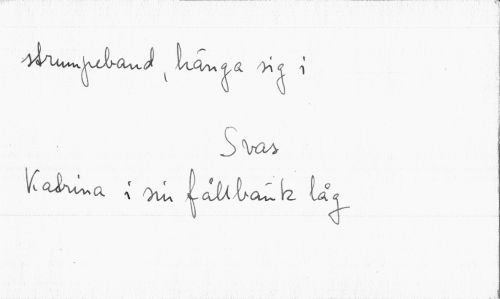 strumpeband, hänga sig i
Svas
Katrina i sin fållbänk låg